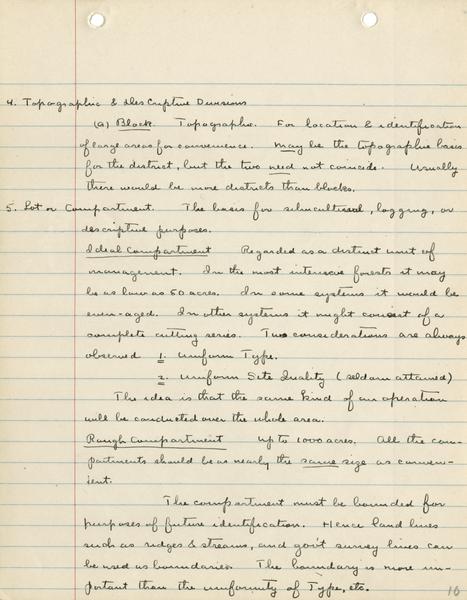 4. Topographic & Descriptive Divisions
(a) Block. Topographic. For location & identification
of large areas for convenience. May be the topographic basis
for the district, but the two need not coincide. Usually
there would be more districts than blocks.
5. Lot or Compartment. The basis for silvicultural, logging, or
descriptive purposes.
Ideal Compartment Regarded as a distinct unit of
management. In the most intensive forests it may
be as low as 50 acres. In some systems it would be
even-aged. In other systems it might consist of a
complete cutting series. Two considerations are always
observed 1. Uniform Type.
2. Uniform Site Quality (seldom attained)
The idea is that the same kind of an operation
will be conducted over the whole area.
Rough Compartment Up to 1000 acres. All the com-
partments should be as nearly the same size as conven-
ient.
The compartment must be bounded for
purposes of future identification. Hence land lines
such as ridges & streams, and gov't survey lines can
be used as boundaries. The boundary is more im-
portant than the uniformity of Type, etc.
16